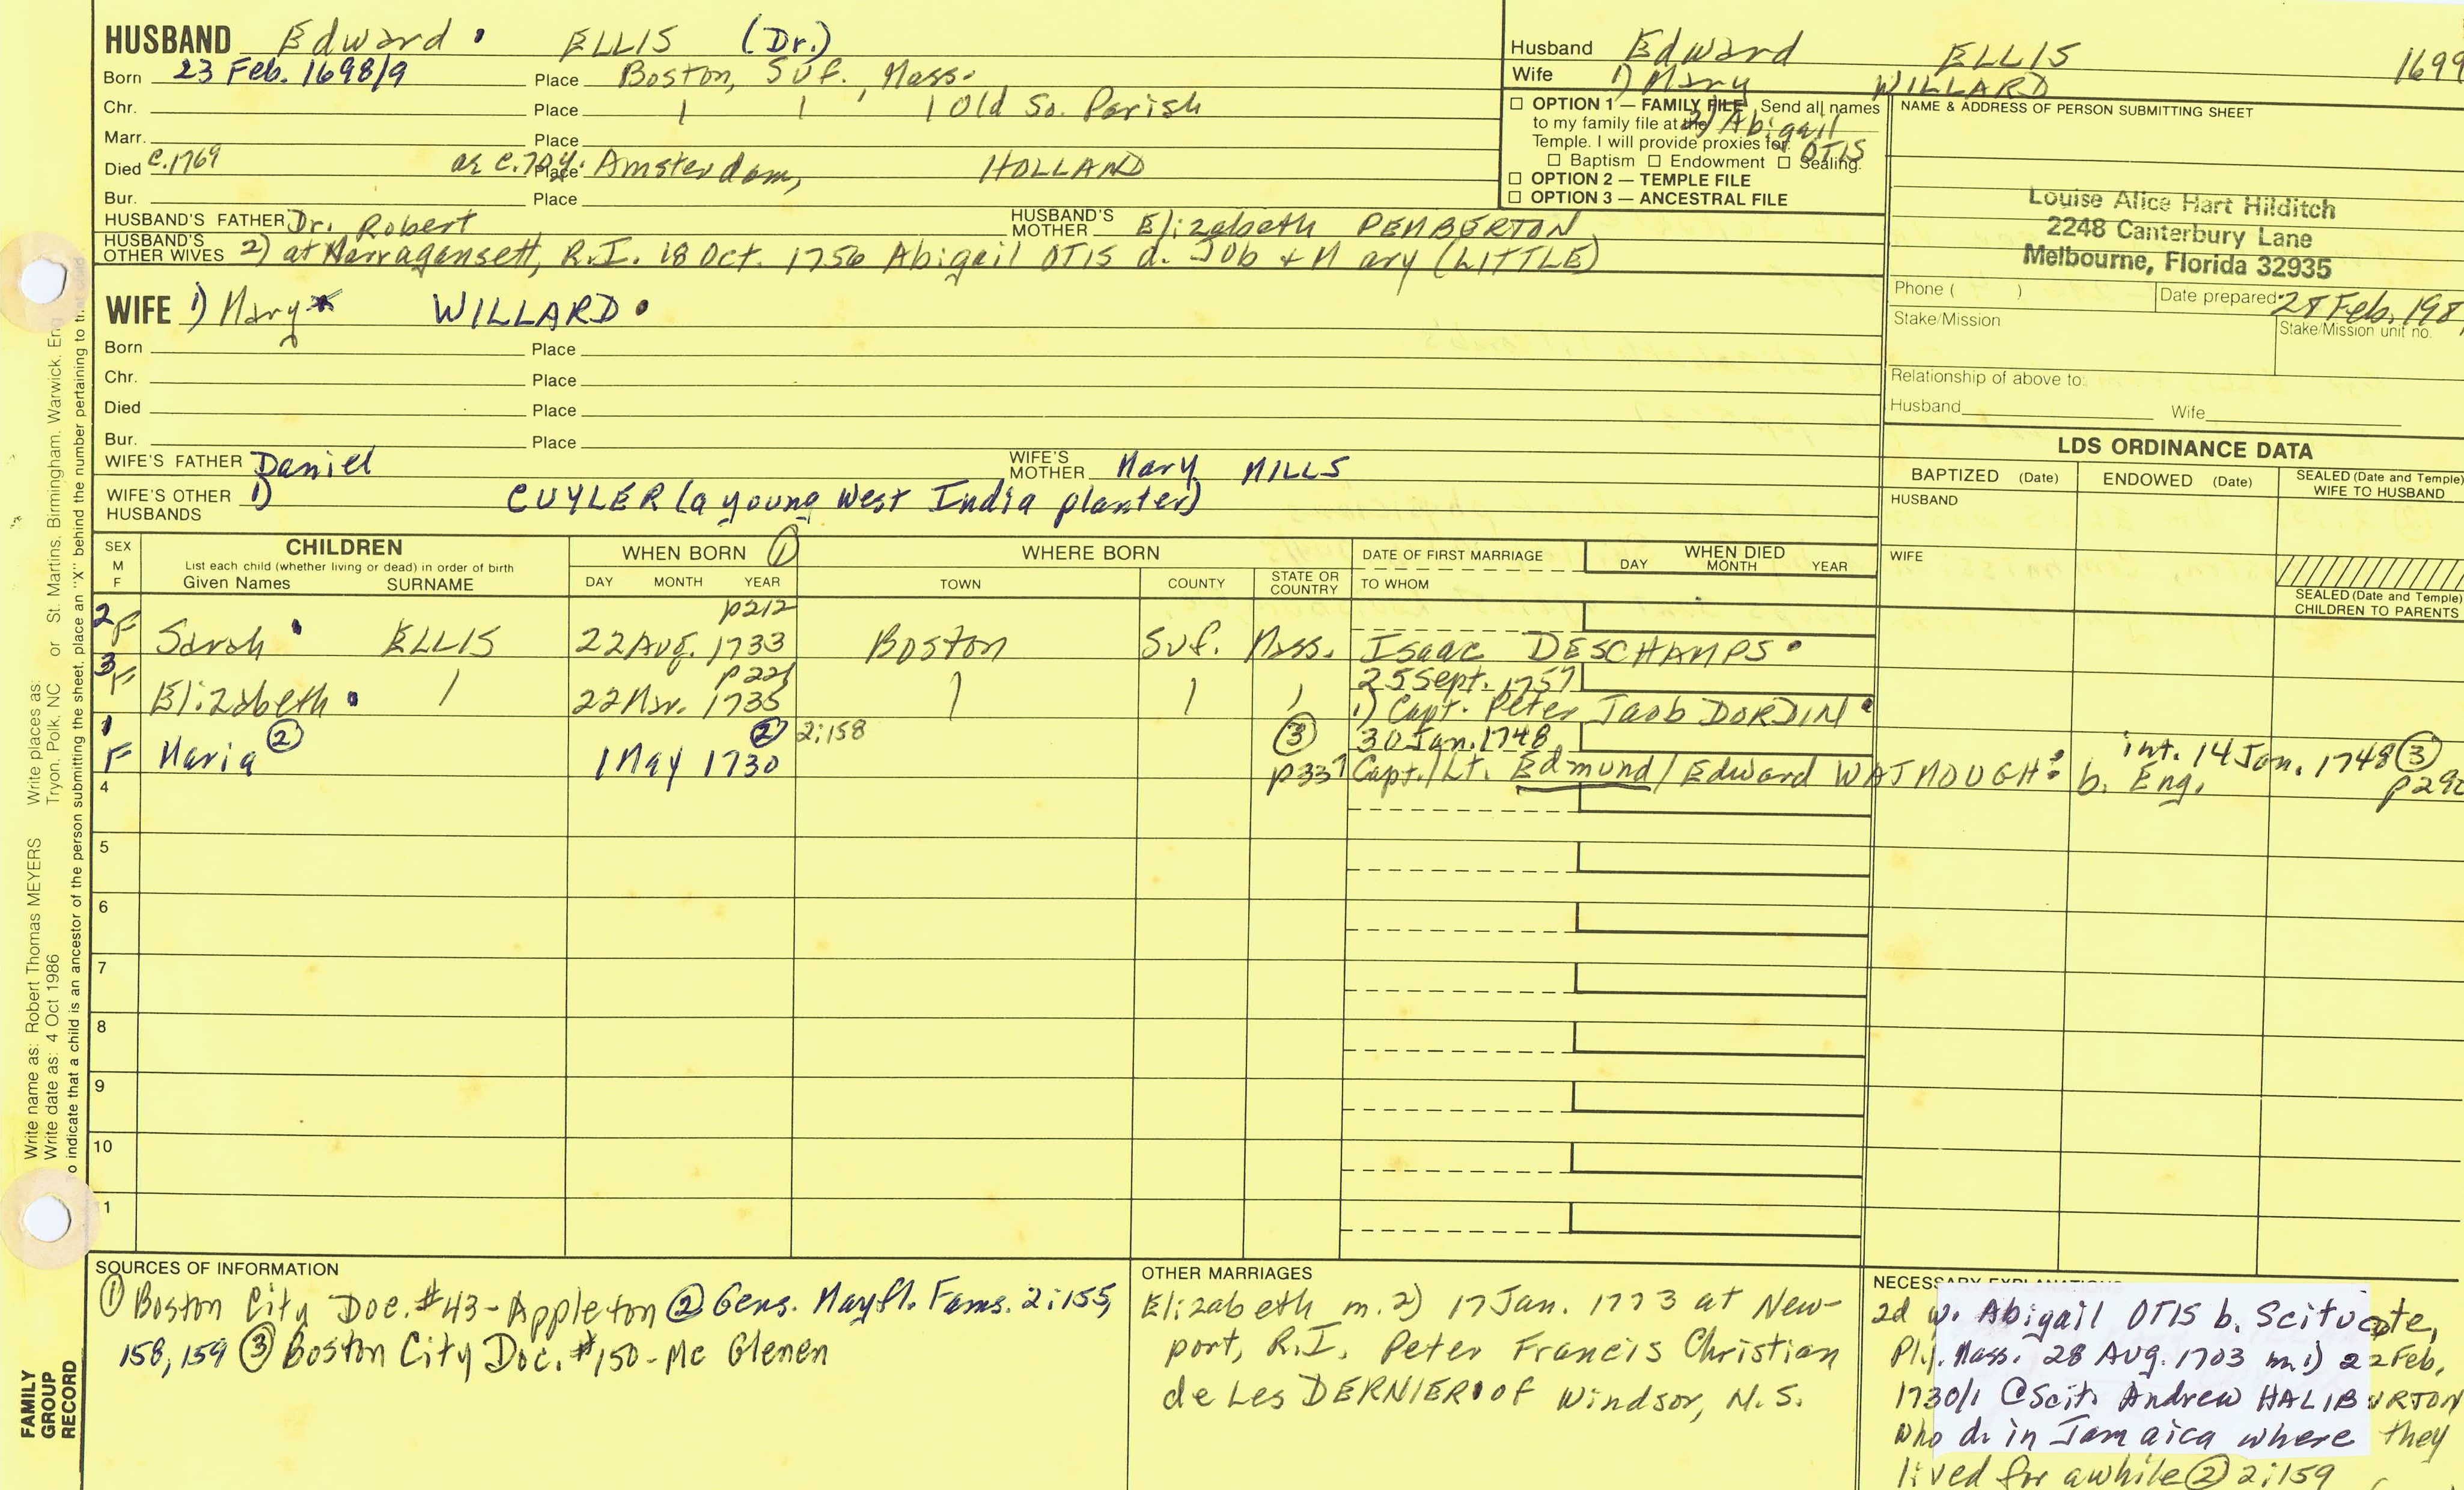 HUSBAND Edward ELLIS (Dr.)
Born 23 Feb. 1698/9 Place Boston, Suf., Mass.
Chr. Place / / / Old So. Parish
Marr. Place
Died c.1769 Place Amsterdam, HOLLAND
Bur. Place
HUSBAND'S FATHER Dr. Robert HUSBAND'S MOTHER Elizabeth PEMBERTON
HUSBAND'S OTHER WIVES 2) at Narragansett, R.I. 18 Oct. 1756 Abigail OTIS d. Job + Mary (LITTLE)
WIFE 1) Mary WILLARD
Born Place
Chr. Place
Died Place
Bur. Place
WIFE'S FATHER Daniel WIFE'S MOTHER Mary MILLS
WIFE'S OTHER HUSBANDS 1) CUYLER (a young West India planter)
Husband Edward ELLIS 1699
Wife 1) Mary WILLARD
2) Abigail OTIS
OPTION 1 — FAMILY FILE Send all names
to my family file at the
Temple. I will provide proxies for
Baptism Endowment Sealing.
OPTION 2 — TEMPLE FILE
OPTION 3 — ANCESTRAL FILE
NAME & ADDRESS OF PERSON SUBMITTING SHEET
Louise Alice Hart Hilditch
2248 Canterbury Lane
Melbourne, Florida 32935
Phone ( ) Date prepared 28 Feb. 198
Stake/Mission Stake/Mission unit no.
Relationship of above to:
Husband Wife
LDS ORDINANCE DATA
BAPTIZED (Date) ENDOWED (Date) SEALED (Date and Temple) WIFE TO HUSBAND
HUSBAND
WIFE
SEALED (Date and Temple)
CHILDREN TO PARENTS
SEX M F
CHILDREN
List each child (whether living or dead) in order of birth
Given Names SURNAME
WHEN BORN ①
DAY MONTH YEAR
WHERE BORN
TOWN COUNTY STATE OR COUNTRY
DATE OF FIRST MARRIAGE
TO WHOM
WHEN DIED
DAY MONTH YEAR
p212
2 F Sarah ELLIS 22 Aug. 1733 Boston Suf. Mass. Isaac DESCHAMPS
p221 25 Sept. 1757
3 F Elizabeth / 22 Mar. 1735 / / / 1) Capt. Peter Jacob DORDIN
② 2:158 ③ 30 Jan. 1748 int. 14 Jan. 1748 ③
1 F Maria ② 1 May 1730 p337 Capt./Lt. Edmund/Edward WATMOUGH b. Eng. p290
4
5
6
7
8
9
10
1
SOURCES OF INFORMATION
① Boston City Doc. #43-Appleton ② Gens. Mayfl. Fams. 2:155,
158, 159 ③ Boston City Doc. #150-Mc Glenen
OTHER MARRIAGES
Elizabeth m. 2) 17 Jan. 1773 at New-
port, R.I. Peter Francis Christian
de Les DERNIER of Windsor, N.S.
NECESSARY EXPLANATIONS
2d w. Abigail OTIS b. Scituate,
Ply. Mass. 28 Aug. 1703 m. 1) 22 Feb.
1730/1 @ Scit. Andrew HALIBURTON
who d. in Jamaica where they
lived for awhile ② 2:159
Write name as: Robert Thomas MEYERS Write places as: St. Martins, Birmingham, Warwick, Eng
Write date as: 4 Oct 1986 Tryon, Polk, NC or
o indicate that a child is an ancestor of the person submitting the sheet, place an "X" behind the number pertaining to
FAMILY
GROUP
RECORD